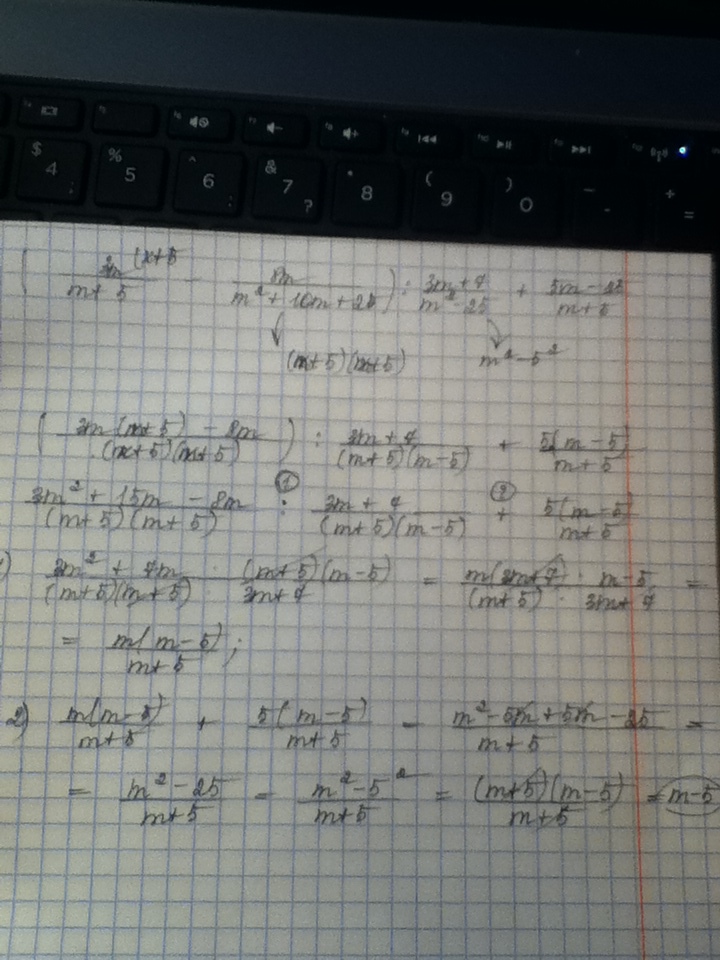 $ 4 ; % 5 ^ 6 : & 7 ? * 8 ( 9 ) 0 - + =
( 3m (x+5 / m+5 - 8m / m²+10m+25 ) : 3m+7 / m²-25 + 5m-25 / m+5
(m+5)(m+5) m²-5²
( 3m(m+5) - 8m / (m+5)(m+5) ) : 3m+7 / (m+5)(m-5) + 5(m-5) / m+5
3m²+15m-8m / (m+5)(m+5) :① 3m+7 / (m+5)(m-5) +② 5(m-5) / m+5
) 3m²+7m / (m+5)(m+5) · (m+5)(m-5) / 3m+7 = m(3m+7) / (m+5) · m-5 / 3m+7 =
= m(m-5) / m+5 ;
2) m(m-5) / m+5 + 5(m-5) / m+5 = m²-5m+5m-25 / m+5 =
= m²-25 / m+5 = m²-5² / m+5 = (m+5)(m-5) / m+5 = m-5